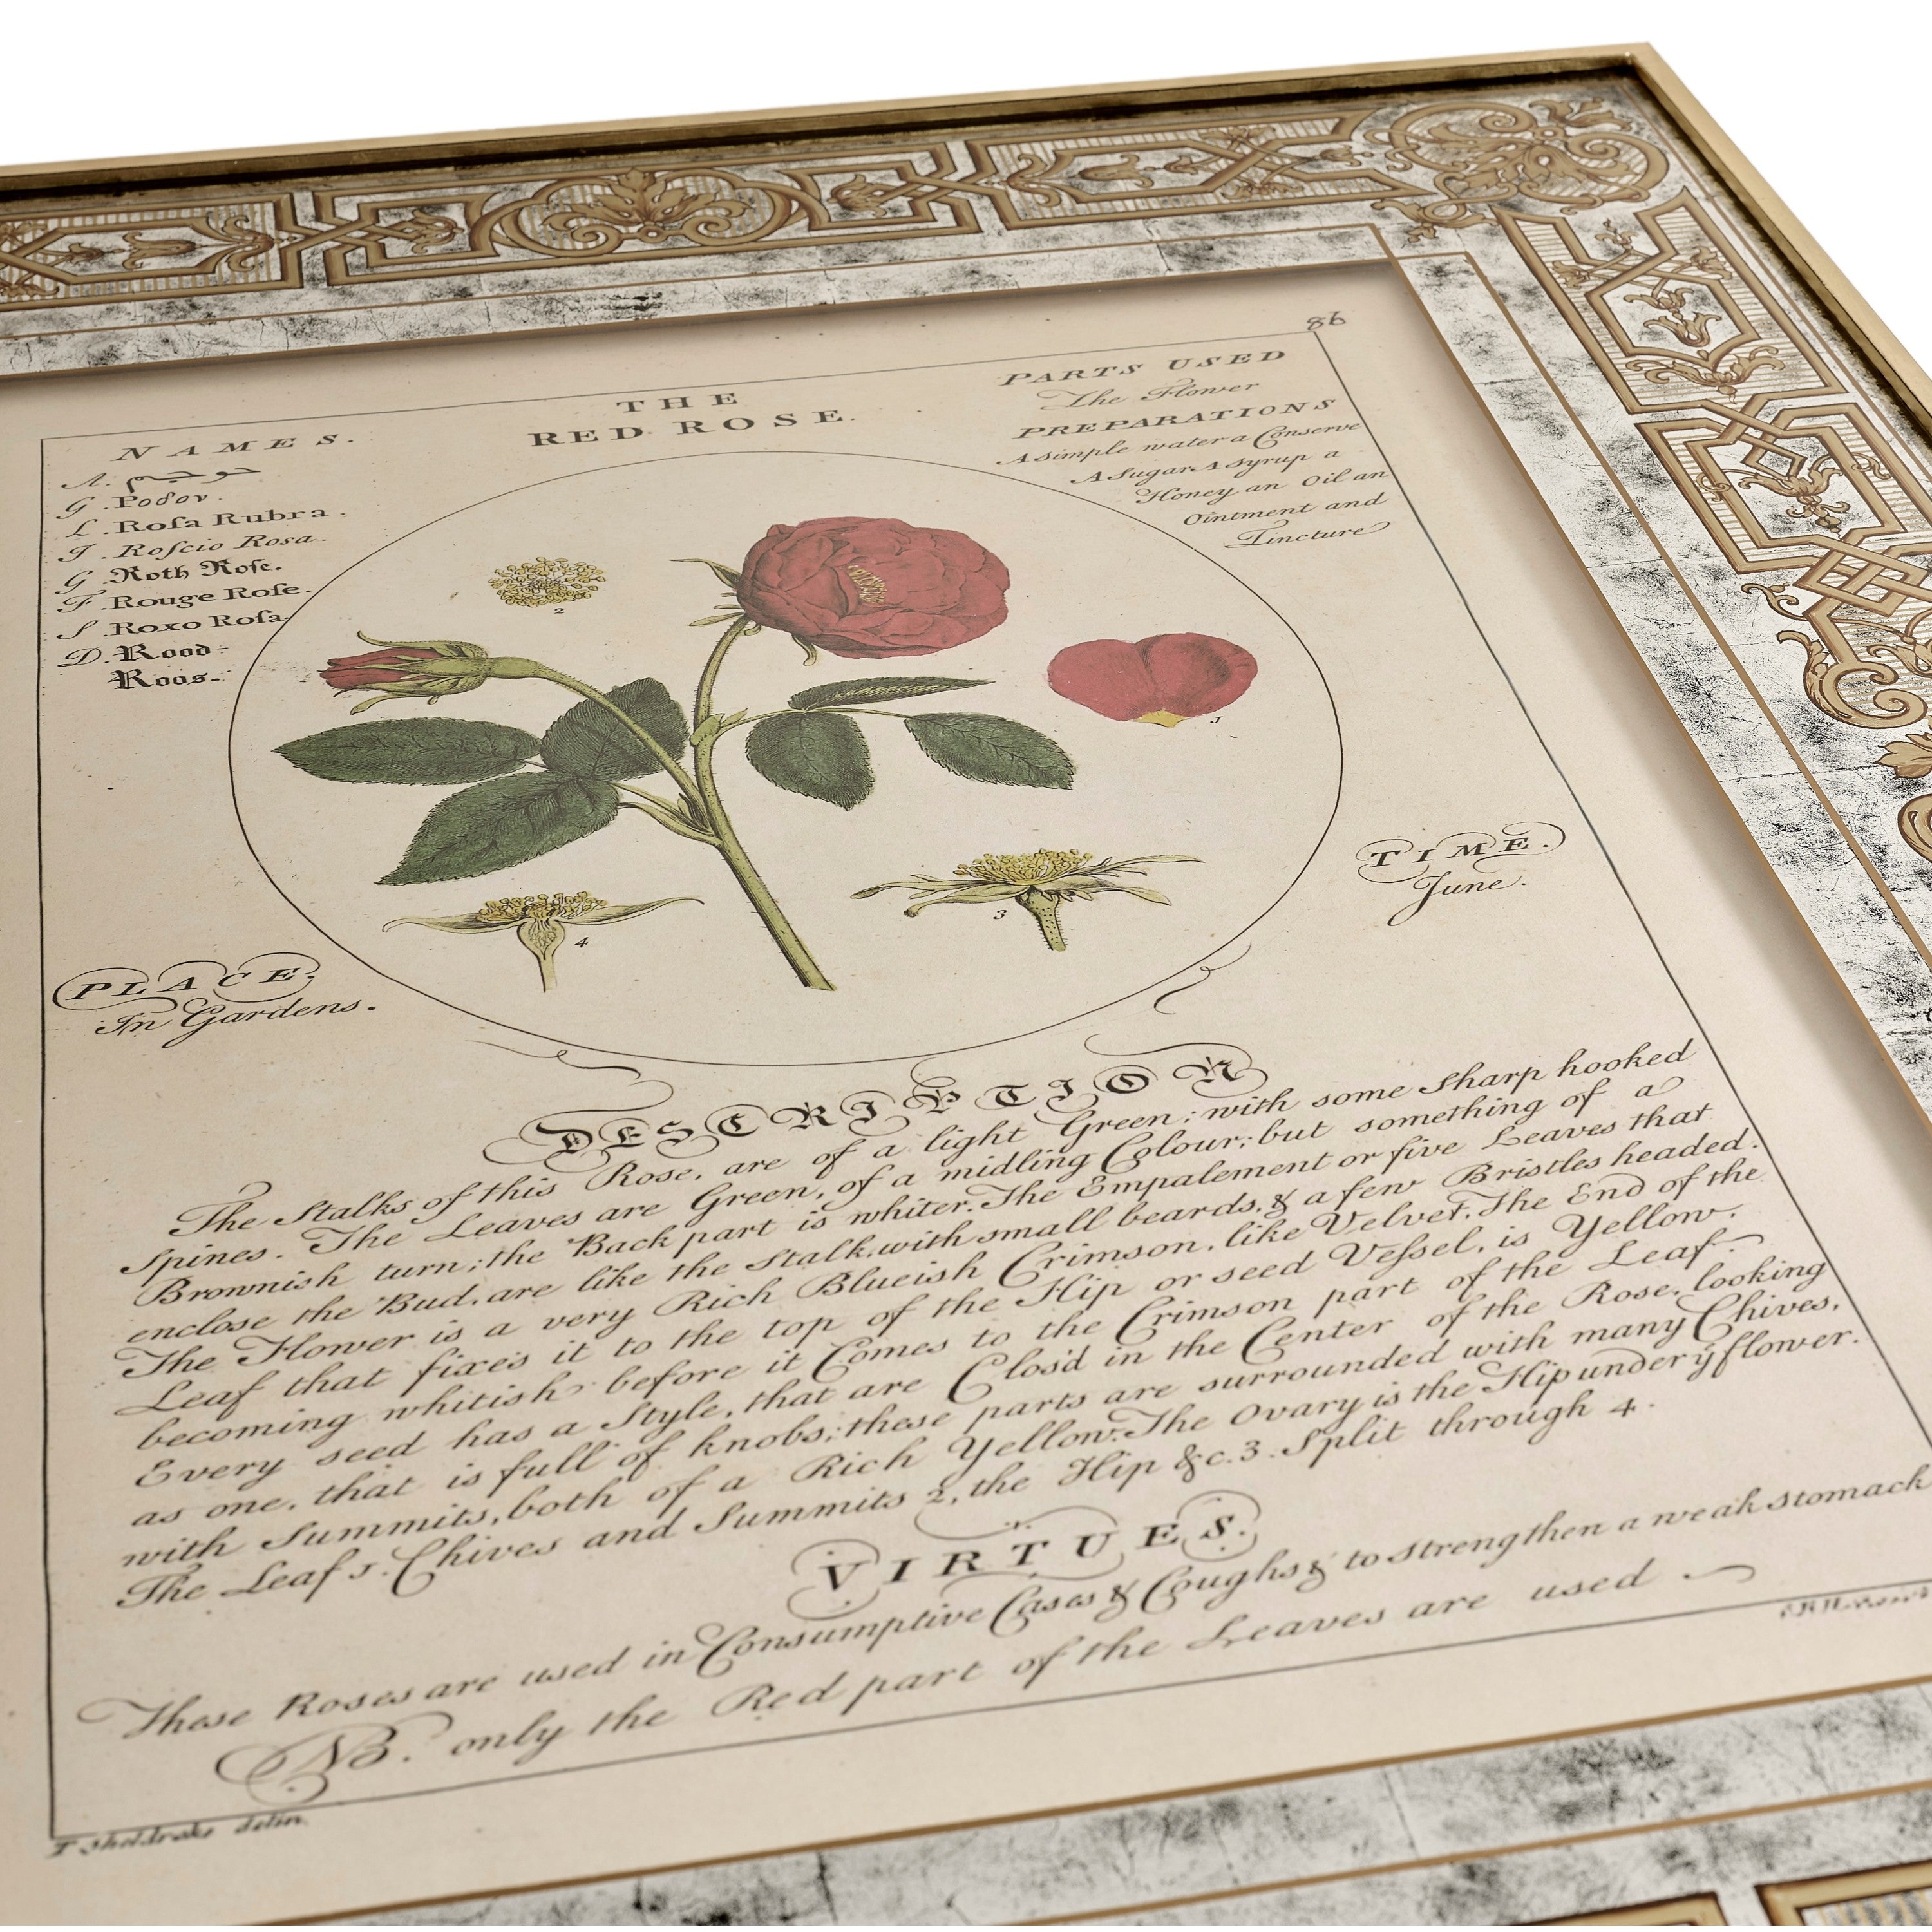 86
THE
RED ROSE.
NAMES.
A. حوجم
G. Ροδον.
L. Roſa Rubra.
I. Roſcio Rosa.
G. Roth Roſe.
F. Rouge Roſe.
S. Roxo Roſa.
D. Rood-
Roos.
PARTS USED
The Flower
PREPARATIONS
A simple water a Conserve
A Sugar A Syrup a
Honey an Oil an
Ointment and
Tincture
2
1
3
4
TIME.
June.
PLACE,
In Gardens.
DESCRIPTION
The Stalks of this Rose, are of a light Green; with some sharp hooked
Spines. The Leaves are Green, of a midling Colour; but something of a
Brownish turn; the Back part is whiter. The Empalement or five Leaves that
enclose the Bud, are like the Stalk, with small beards, & a few Bristles headed.
The Flower is a very Rich Blueish Crimson, like Velvet. The End of the
Leaf that fixes it to the top of the Hip or seed Veſsel, is Yellow,
becoming whitish before it Comes to the Crimson part of the Leaf.
Every seed has a Style, that are Clos'd in the Center of the Rose, looking
as one, that is full of knobs; these parts are surrounded with many Chives,
with Summits, both of a Rich Yellow. The Ovary is the Hip under yͤ flower.
The Leaf 1. Chives and Summits 2, the Hip &c. 3. Split through 4.
VIRTUES.
These Roses are used in Consumptive Cases & Coughs & to strengthen a weak stomack
NB. only the Red part of the Leaves are used
T Sheldrake delin.